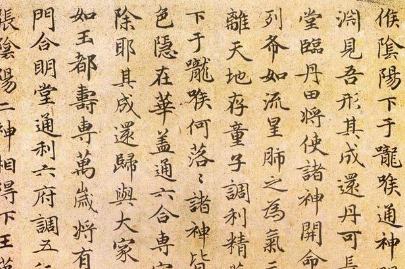 候陰陽下于嚨喉通神
淵見吾形其成還丹可長
堂臨丹田將使諸神開命
列布如流星肺之為氣三
離天地存童子調利精
下于嚨喉何落〻諸神皆
色隱在華蓋通六合專
除耶其成還歸與大家
如王都壽專萬歲將有
門合明堂通利六府調五
張陰陽二神相得下王